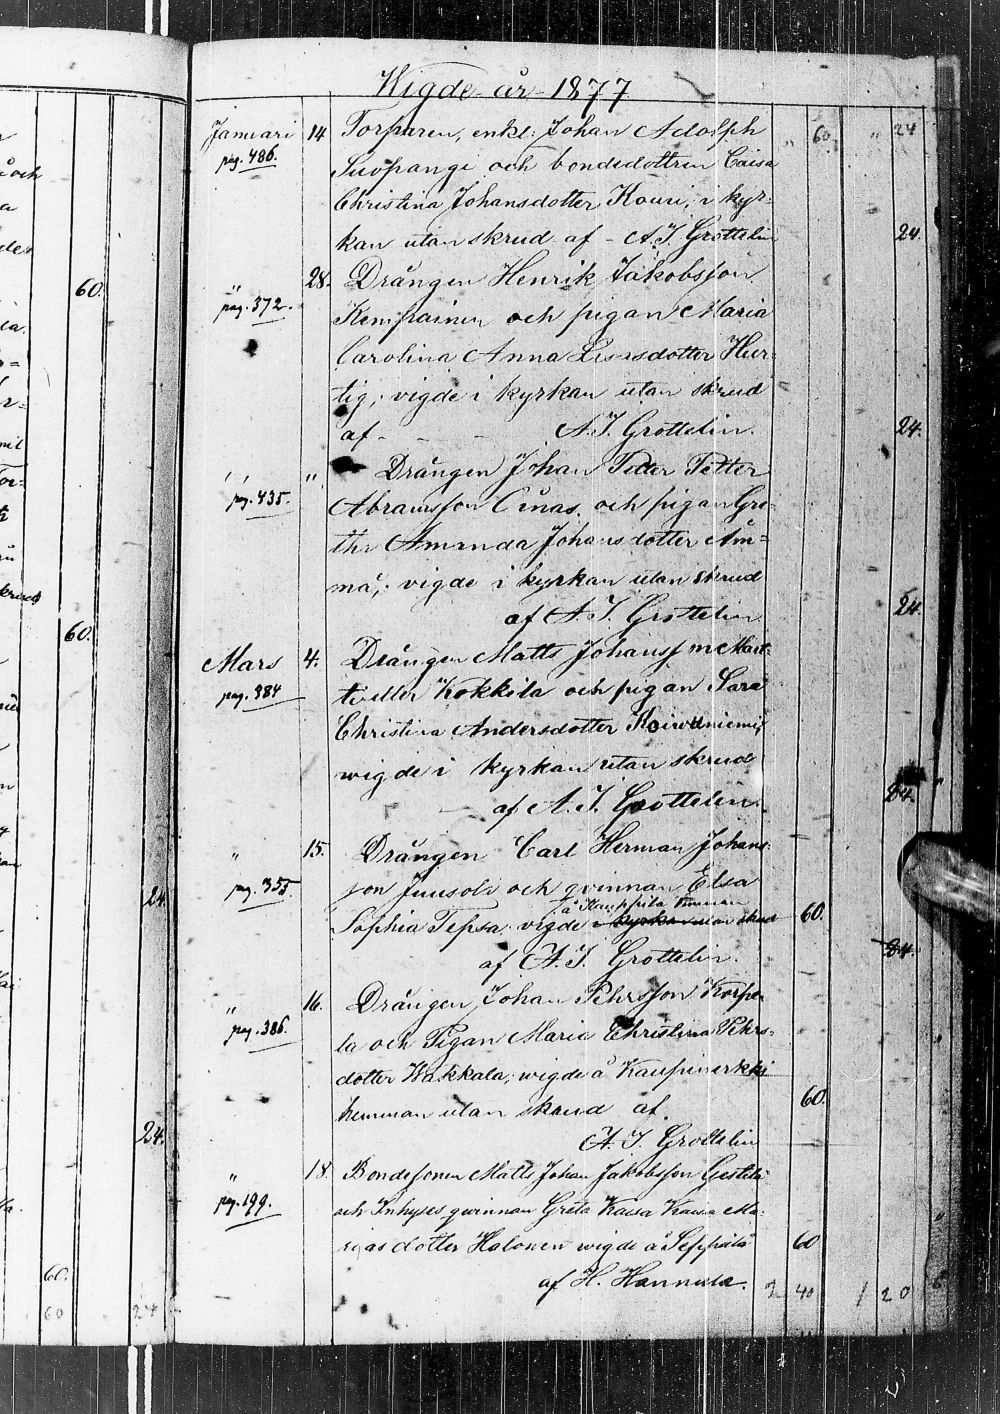 Wigde år 1877
Januari 14. Torparen, enkl. Johan Adolph 60 " 24
pag. 486. Suopangi och bondedottren Caisa
Christina Johansdotter Kouri, i kyr-
kan utan skrud af - A. I. Grottelin 24.
" 28. Drängen Henrik Jakobsson
pag. 372. Kempainen och pigan Maria
Carolina Anna Hur-
tig, vigde i kyrkan utan skrud
af - - - A. I. Grottelin. 24.
" " Drängen Johan Petter Petter
pag. 435. Abramsson och pigan Gre-
tha Amanda Johansdotter Äm-
mä, vigde i kyrkan utan skrud
af A. I. Grottelin 24.
Mars 4. Drängen Matts Johansson Mart-
pag. 384 eller Kokkila och pigan Sara
Christina Andersdotter Koivuniemi,
wigde i kyrkan utan skrud
af A. I. Grottelin. 24.
" 15. Drängen Carl Herman Johans-
pag. 355. son Juusola och qvinnan Elsa
å Kauppila hemman
Sophia Tepsa, vigde i kyrkan utan skrud 60.
af A. I. Grottelin. 24.
" 16. Drängen Johan Pehrsson Korpe-
pag. 386. la och Pigan Maria Christina Pehrs-
dotter Wakkala, wigde å
hemman utan skrud af. 60.
A. I. Grottelin
" 18. Bondesonen Matts Johan Jakobsson
pag. 199. och Inhyses qvinnan Greta Kaisa Ma-
dotter Halonen wigde å Seppälä 60
af H. Hannula.
2 40 1 20
60.
60.
24.
24.
60.
60 24